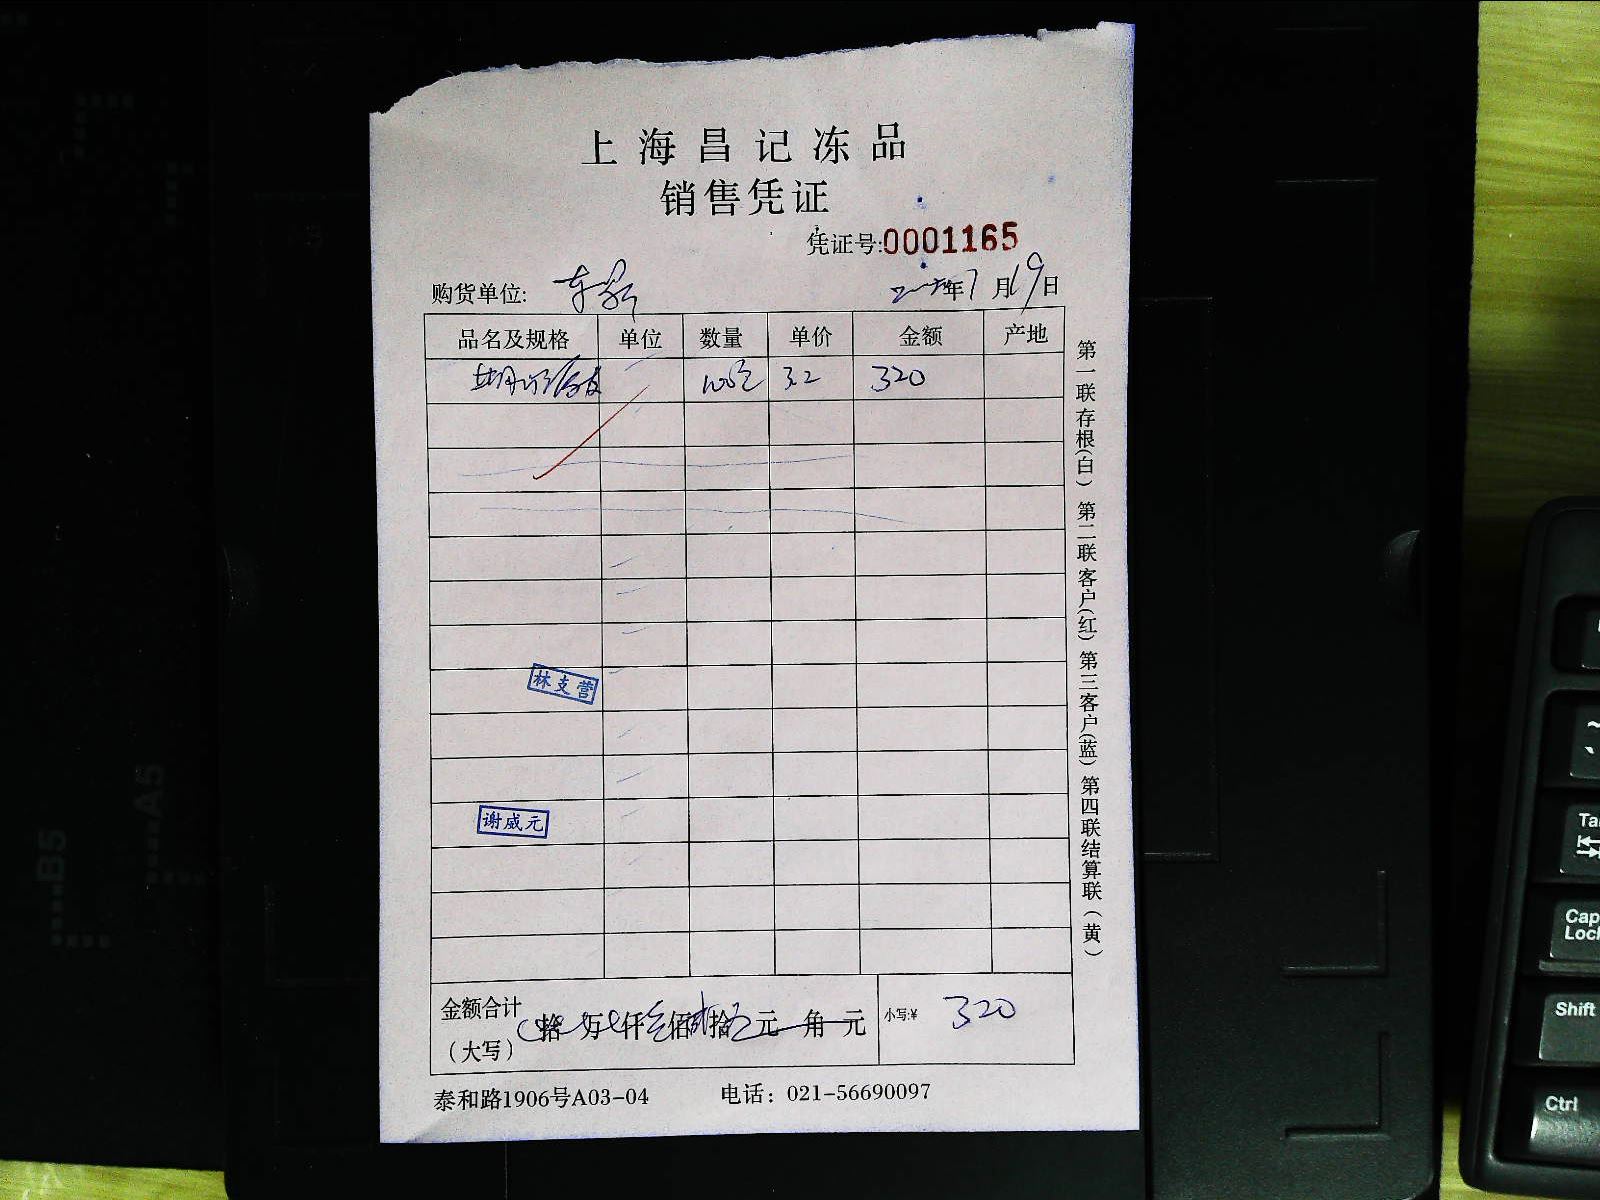 上海昌记冻品
销售凭证
凭证号:0001165
购货单位:
年7月19日
品名及规格 单位 数量 单价 金额 产地
3.2 320
林支营
谢威元
金额合计
(大写)
拾 万 仟 佰 拾 元 角 元
小写:¥ 320
泰和路1906号A03-04 电话：021-56690097
第一联存根(白) 第二联客户(红) 第三客户(蓝) 第四联结算联(黄)
B5
A5
Tab
Caps
Lock
Shift
Ctrl